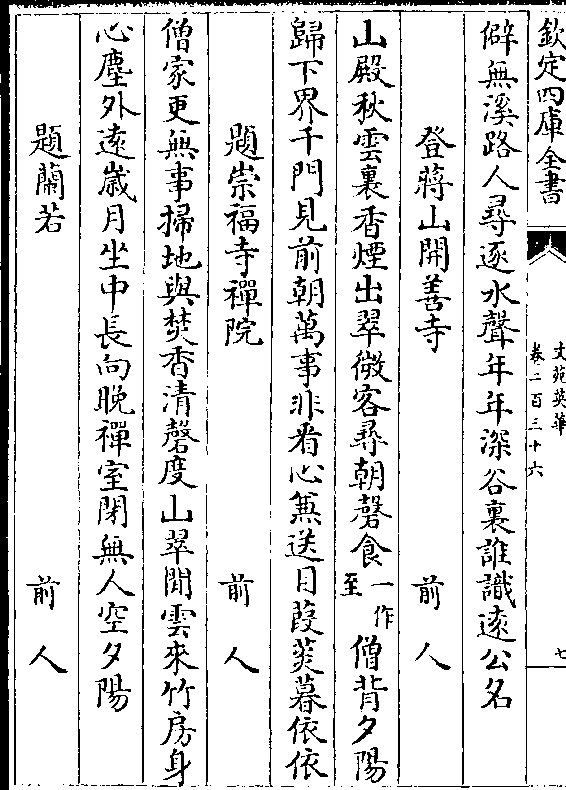 欽定四庫全書
文苑英華
卷二百三十六
七
僻無溪路人尋逐水聲年年深谷裏誰識逺公名
登蔣山開善寺
前人
山殿秋雲裏香煙出翠微客尋朝磬食一作至僧背夕陽
歸下界千門見前朝萬事非看心兼送目葭菼暮依依
題崇福寺禪院
前人
僧家更無事掃地與焚香清磬度山翠閒雲來竹房身
心塵外逺歲月坐中長向晚禪室閉無人空夕陽
題蘭若
前人